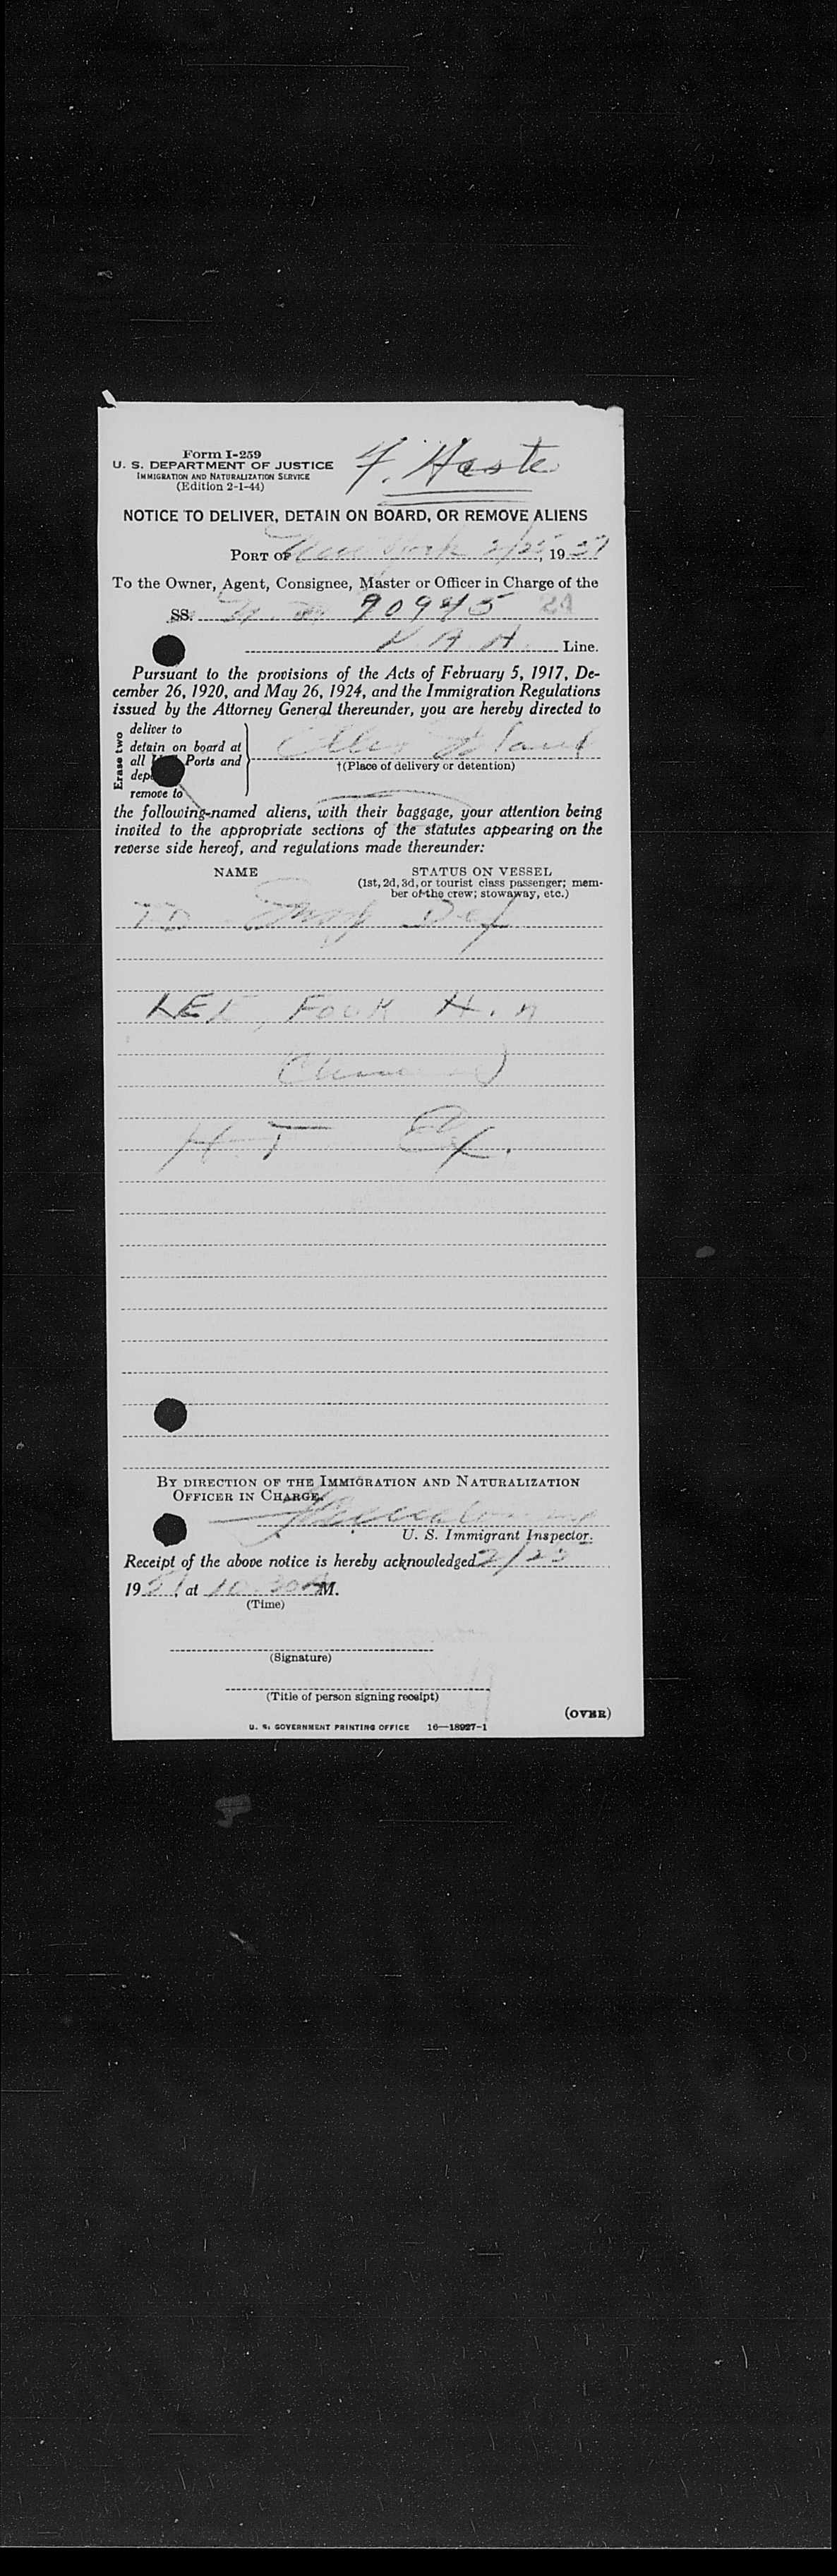 Form I-259
U. S. DEPARTMENT OF JUSTICE
IMMIGRATION AND NATURALIZATION SERVICE
(Edition 2-1-44)
F. Haste
NOTICE TO DELIVER, DETAIN ON BOARD, OR REMOVE ALIENS
PORT OF New York 2/25, 19
To the Owner, Agent, Consignee, Master or Officer in Charge of the
SS. 90945
Line.
Pursuant to the provisions of the Acts of February 5, 1917, De-
cember 26, 1920, and May 26, 1924, and the Immigration Regulations
issued by the Attorney General thereunder, you are hereby directed to
Erase two
deliver to
detain on board at
all Ports and
remove to
Ellis Island
†(Place of delivery or detention)
the following-named aliens, with their baggage, your attention being
invited to the appropriate sections of the statutes appearing on the
reverse side hereof, and regulations made thereunder:
NAME
STATUS ON VESSEL
(1st, 2d, 3d, or tourist class passenger; mem-
ber of the crew; stowaway, etc.)
TD Def
LEE, FOOK
H T Ex.
BY DIRECTION OF THE IMMIGRATION AND NATURALIZATION
OFFICER IN CHARGE.
U. S. Immigrant Inspector.
Receipt of the above notice is hereby acknowledged 2/25
19 , at 10:30 A M.
(Time)
(Signature)
(Title of person signing receipt)
(OVER)
U. S. GOVERNMENT PRINTING OFFICE 16—18927-1